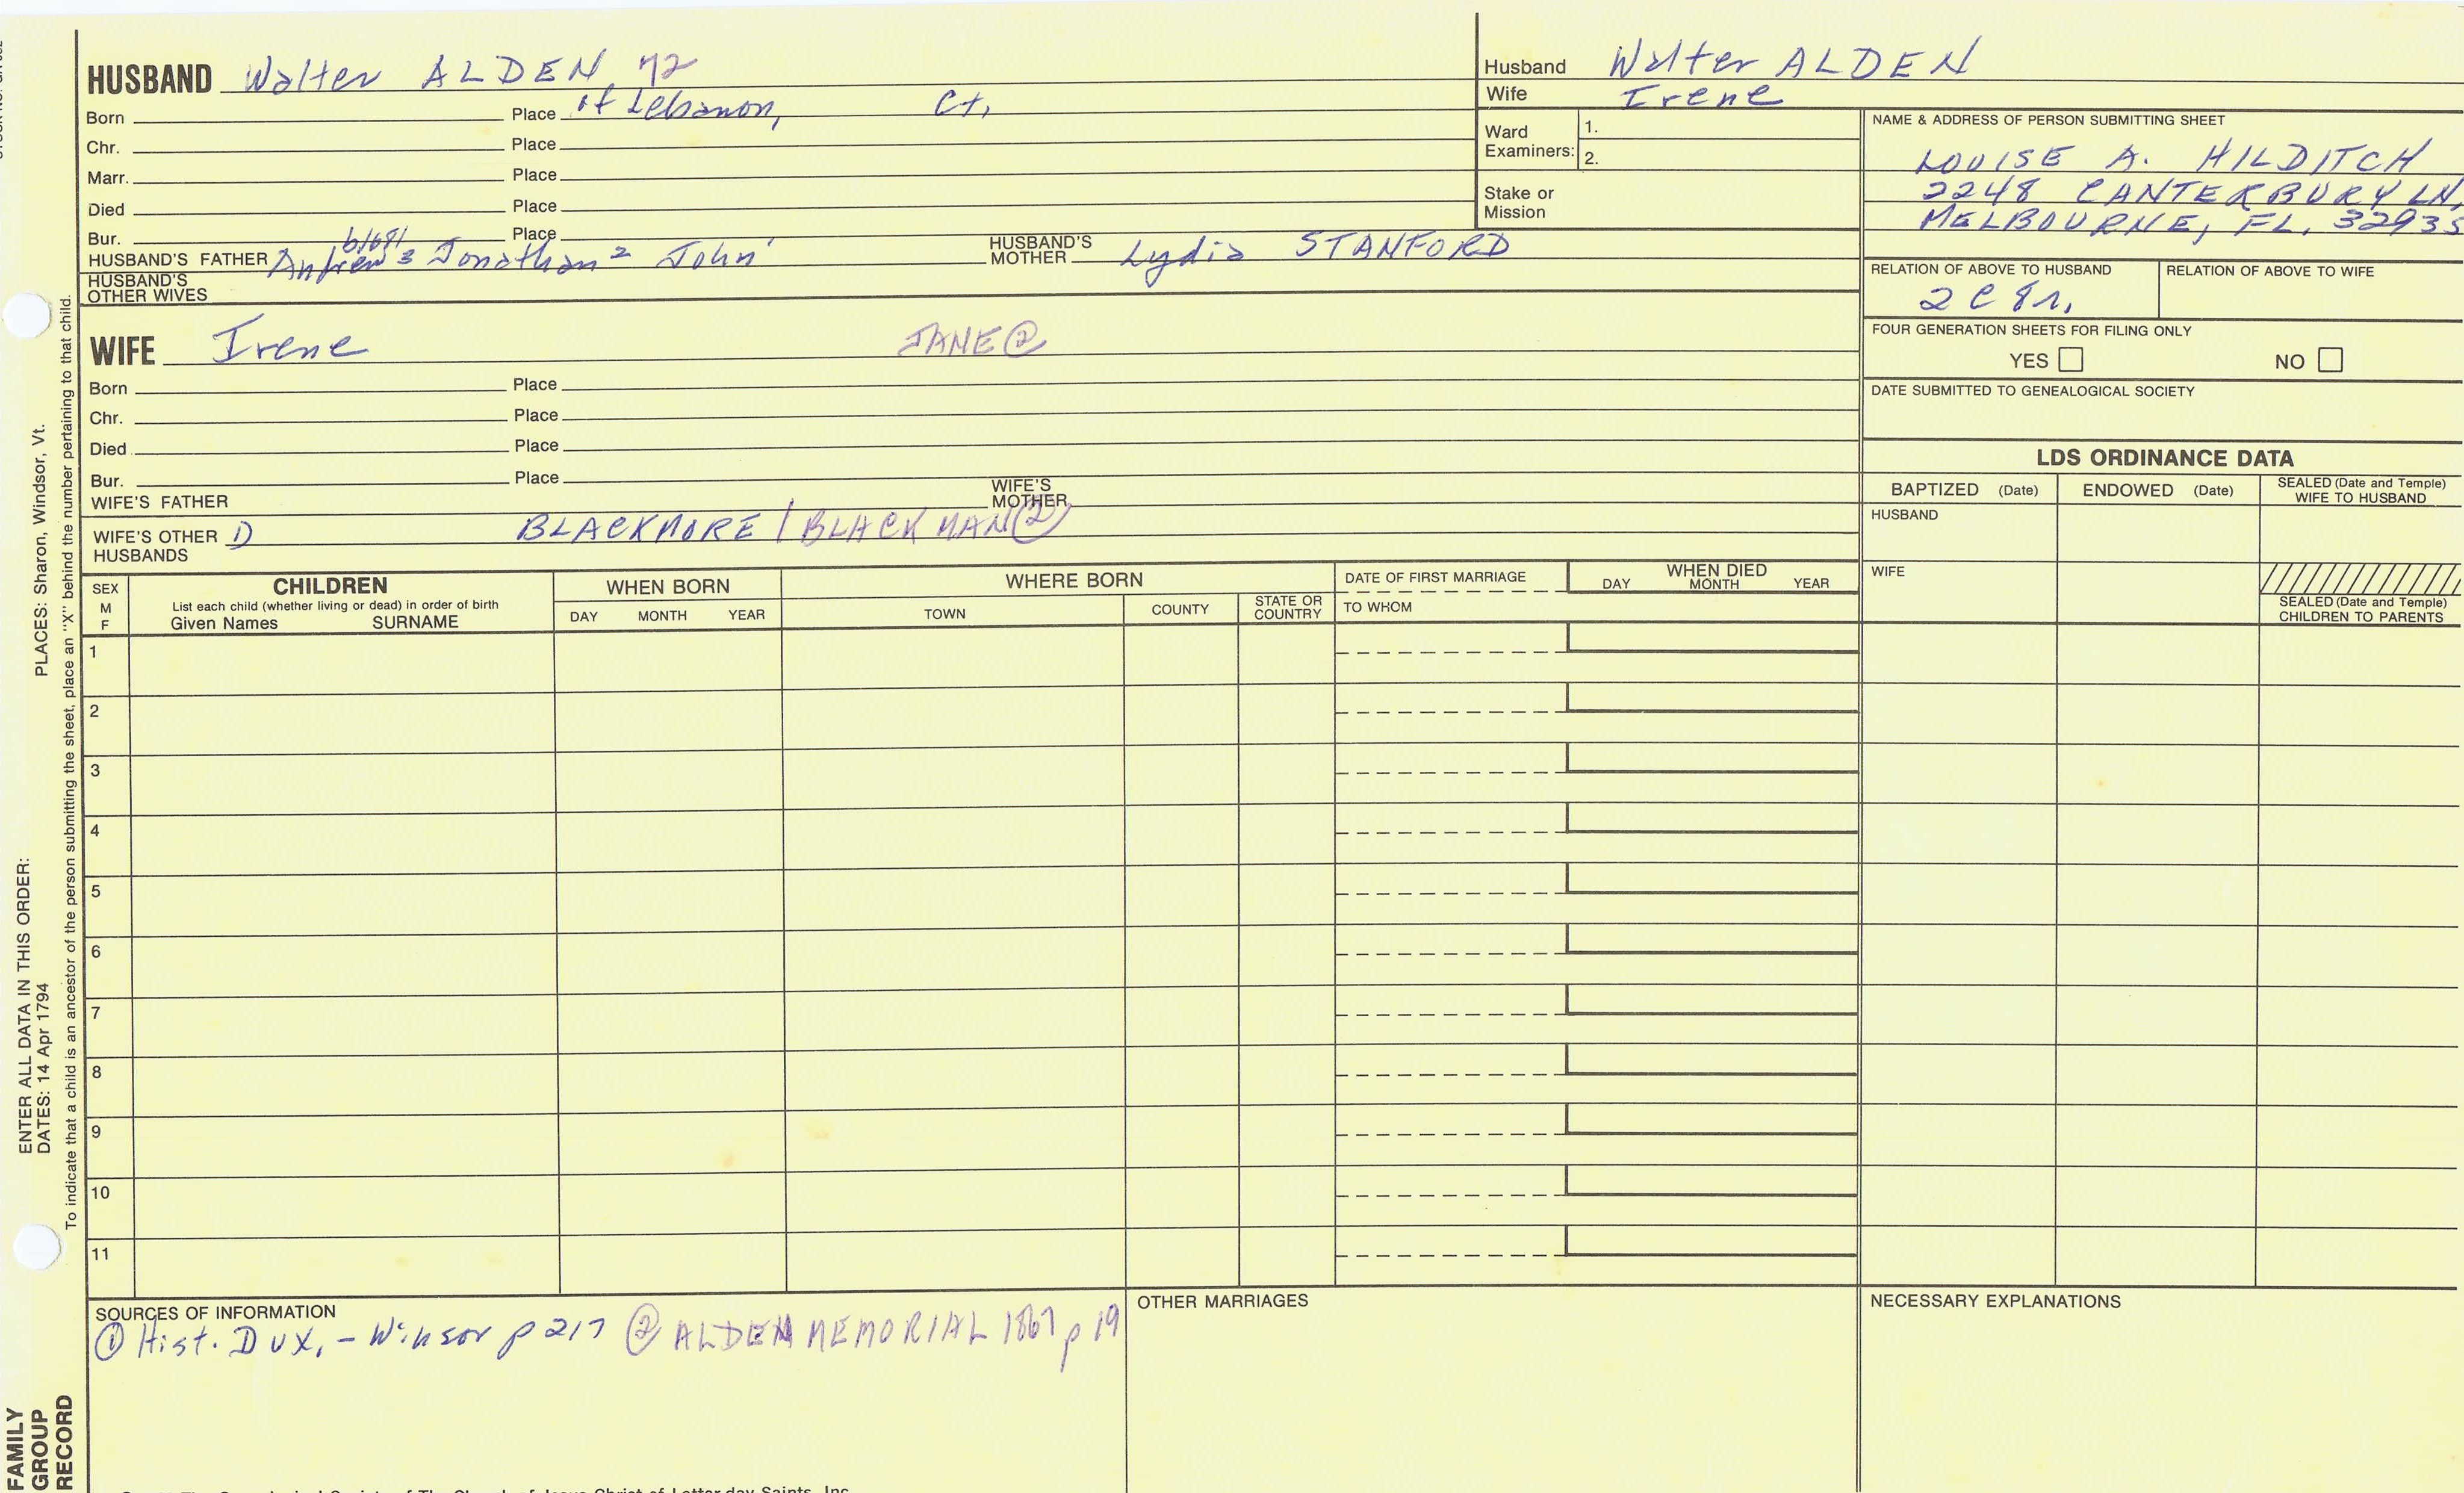 HUSBAND Walter ALDEN 72
Born Place of Lebanon, Ct.
Chr. Place
Marr. Place
Died Place
Bur. Place
b1681
HUSBAND'S FATHER Andrew 3 Jonathan 2 John 1 HUSBAND'S MOTHER Lydia STANFORD
HUSBAND'S OTHER WIVES
WIFE Irene JANE②
Born Place
Chr. Place
Died Place
Bur. Place
WIFE'S FATHER WIFE'S MOTHER
WIFE'S OTHER HUSBANDS D BLACKMORE / BLACKMAN②
Husband Walter ALDEN
Wife Irene
Ward Examiners: 1.
2.
Stake or Mission
NAME & ADDRESS OF PERSON SUBMITTING SHEET
LOUISE A. HILDITCH
2248 CANTERBURY LN,
MELBOURNE, FL. 32935
RELATION OF ABOVE TO HUSBAND RELATION OF ABOVE TO WIFE
2C 8r.
FOUR GENERATION SHEETS FOR FILING ONLY
YES NO
DATE SUBMITTED TO GENEALOGICAL SOCIETY
LDS ORDINANCE DATA
BAPTIZED (Date) ENDOWED (Date) SEALED (Date and Temple) WIFE TO HUSBAND
HUSBAND
WIFE
SEALED (Date and Temple)
CHILDREN TO PARENTS
SEX M F
CHILDREN
List each child (whether living or dead) in order of birth
Given Names SURNAME
WHEN BORN
DAY MONTH YEAR
WHERE BORN
TOWN COUNTY STATE OR COUNTRY
DATE OF FIRST MARRIAGE
TO WHOM
WHEN DIED
DAY MONTH YEAR
1
2
3
4
5
6
7
8
9
10
11
SOURCES OF INFORMATION
① Hist. DUX. - Winsor p 217 ② ALDEN MEMORIAL 1867 p 19
OTHER MARRIAGES
NECESSARY EXPLANATIONS
PLACES: Sharon, Windsor, Vt.
ENTER ALL DATA IN THIS ORDER:
DATES: 14 Apr 1794
To indicate that a child is an ancestor of the person submitting the sheet, place an "X" behind the number pertaining to that child.
FAMILY
GROUP
RECORD